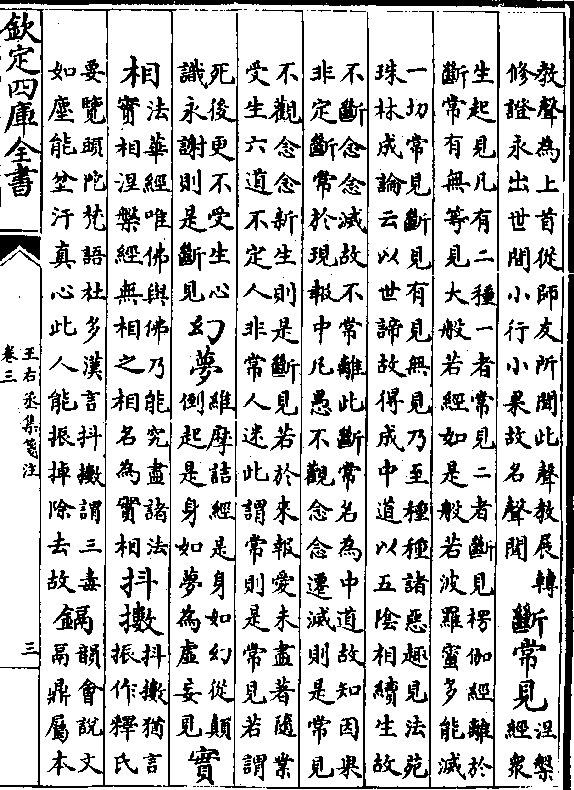 教聲為上首從師友所聞此聲教展轉
修證永出世間小行小果故名聲聞
斷常見
涅槃
經衆
生起見凡有二種一者常見二者斷見楞伽經離於
斷常有無等見大般若經如是般若波羅蜜多能滅
一切常見斷見有見無見乃至種種諸惡趣見法苑
珠林成論云以世諦故得成中道以五陰相續生故
不斷念念滅故不常離此斷常名為中道故知因果
非定斷常於現報中凡愚不觀念念遷滅則是常見
不觀念念新生則是斷見若於來報愛未盡著隨業
受生六道不定人非常人迷此謂常則是常見若謂
死後更不受生心
識永謝則是斷見
幻夢
維摩詰經是身如幻從顛
倒起是身如夢為虛妄見
實
相
法華經唯佛與佛乃能究盡諸法
實相涅槃經無相之相名為實相
抖擻
抖擻猶言
振作釋氏
要覽頭陀梵語杜多漢言抖擻謂三毒
如塵能坌汙真心此人能振掉除去故
鎘
韻會說文
鬲鼎屬本
欽定四庫全書
王右丞集箋注
卷三
三